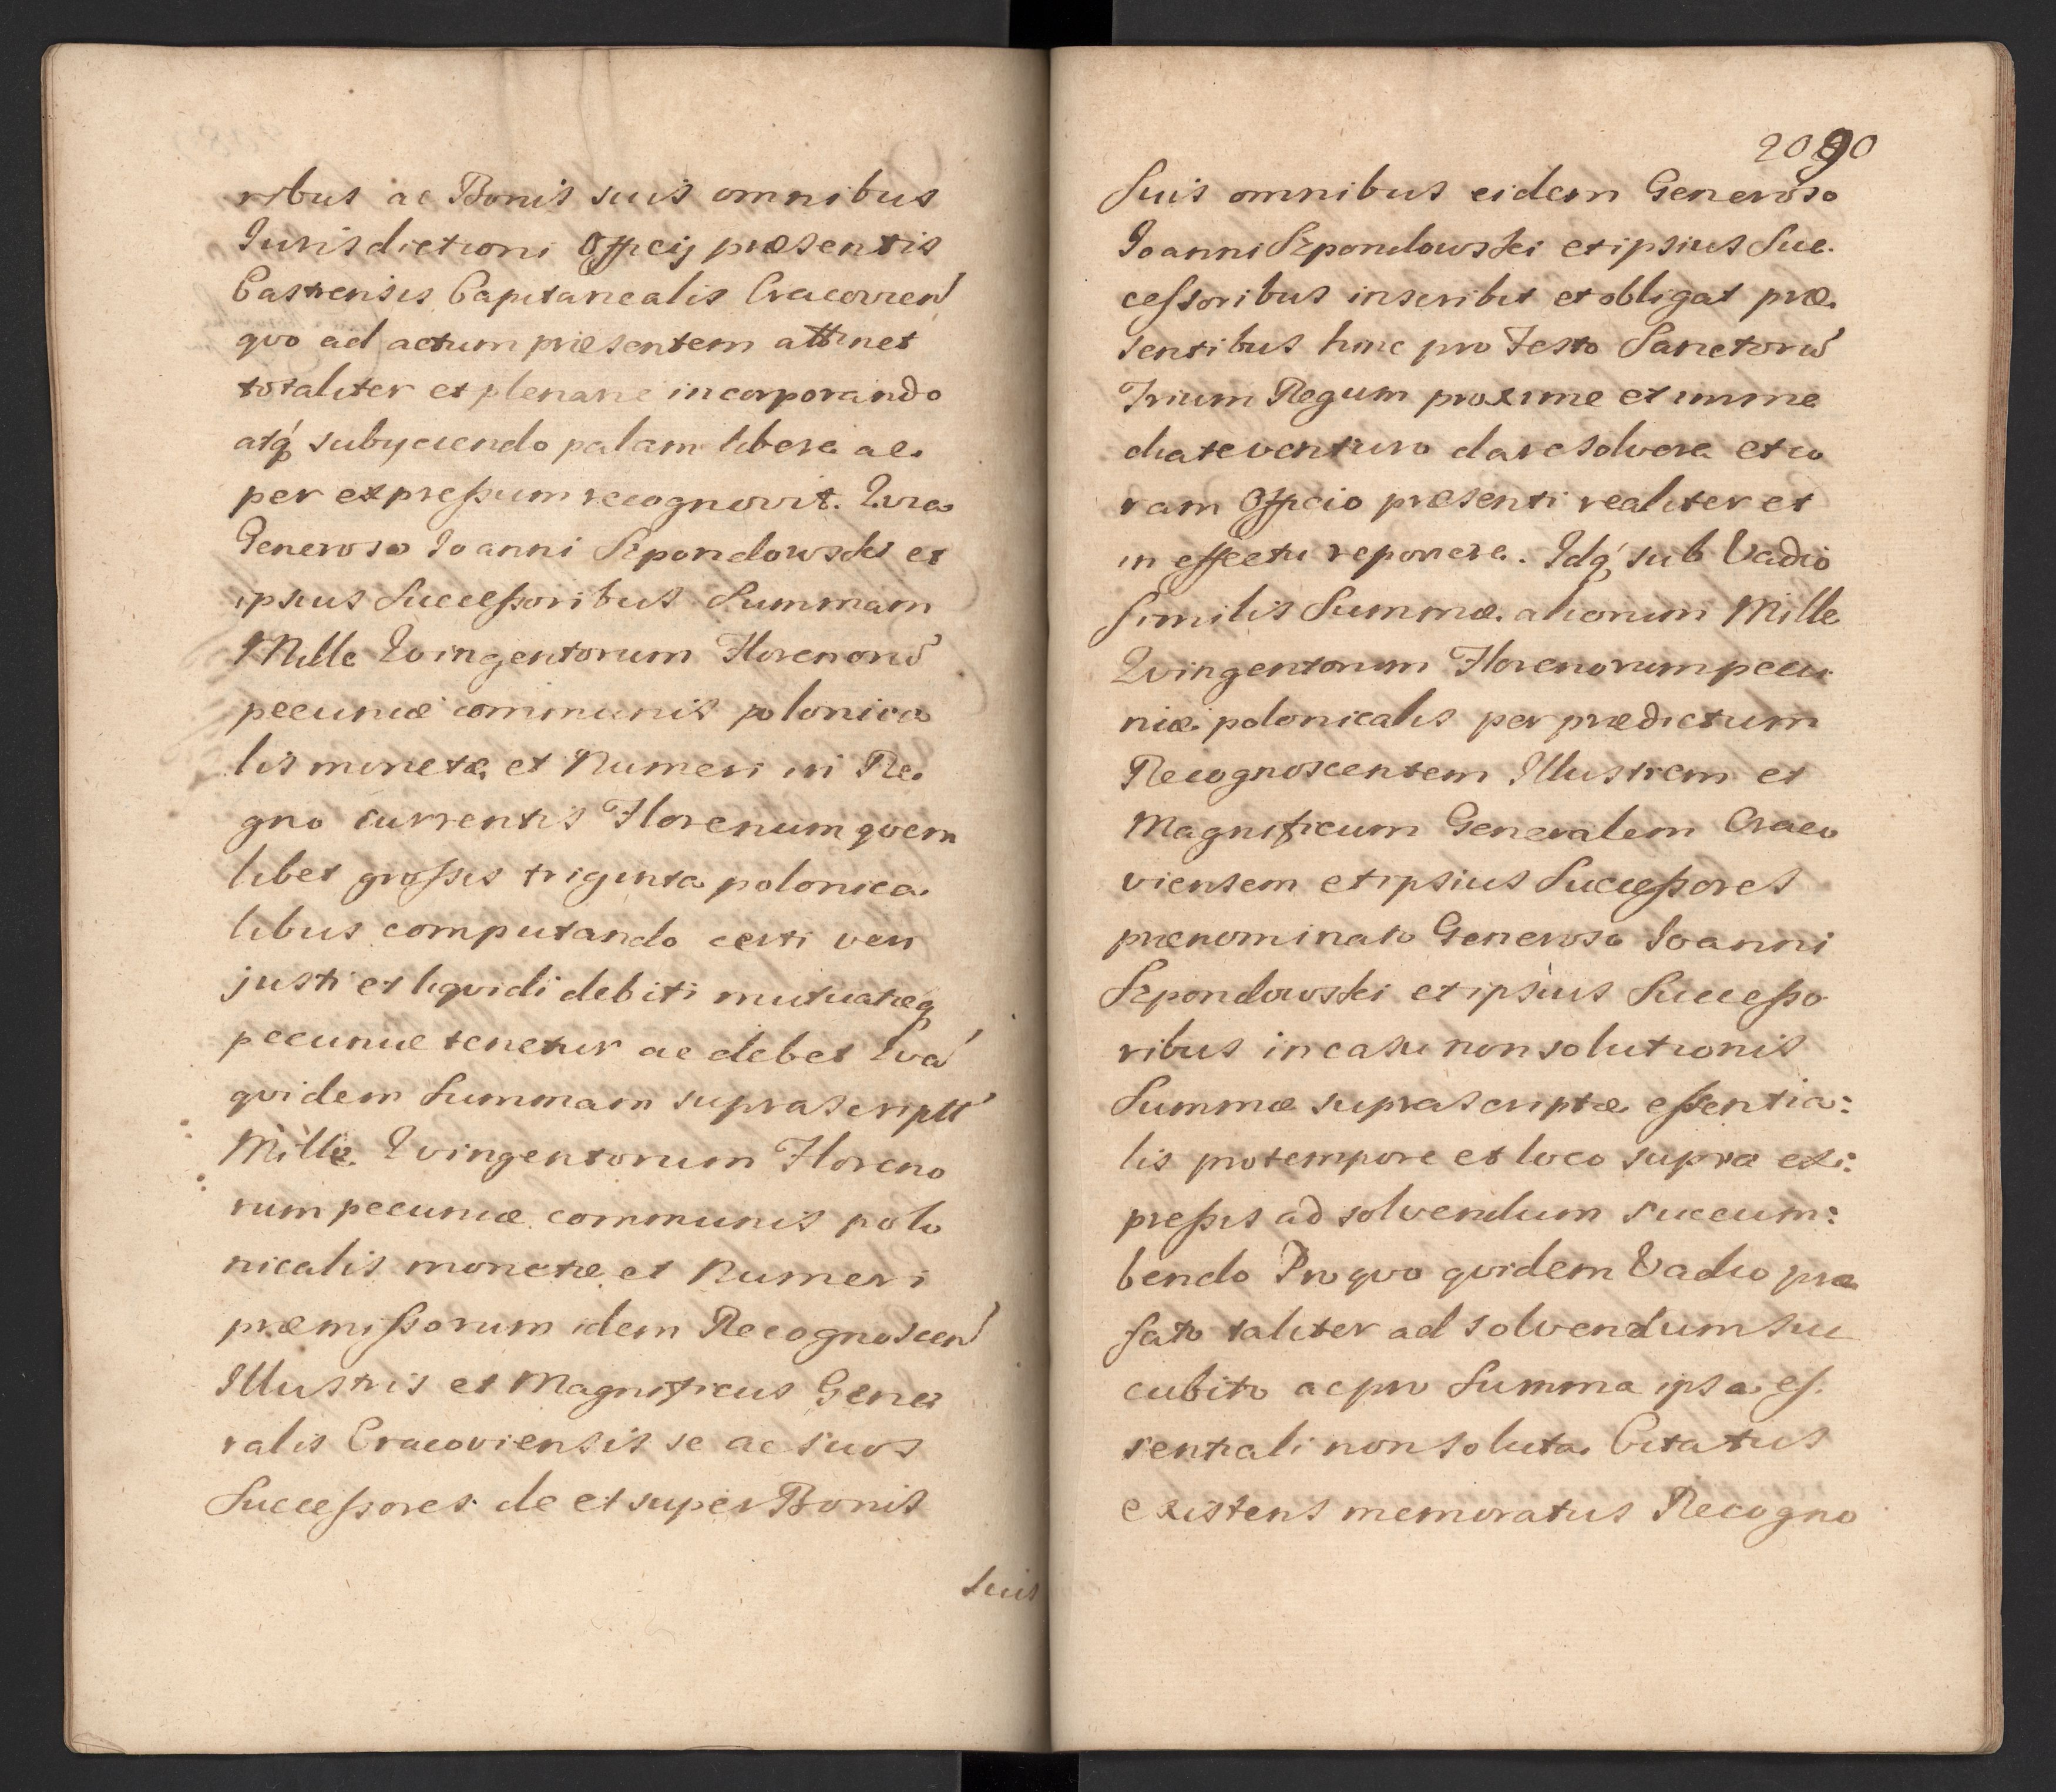 ribus ac Bonis suis omnibus
Jurisdictioni Officij præsentis
Castrensis Capitanealis Cracovien̄
qvo ad actum præsentem attinet
totaliter et plenarie incorporando
atq́ subyciendo palam libere ac
per expressum recognovit. Qvia
Generoso Joanni Szpondowski et
ipsius Successoribus Summam
Mille Qvingentorum Florenorū
pecuniæ communis polonica
lis monetæ et Numeri in Re.
gno currentis Florenum qvem
libet grossis triginta polonica.
libus computando certi veri
justi et liqvidi debiti mutuatæq
pecuniæ tenetur ac debet Qvā
qvidem Summam suprascriptā
Mille Qvingentorum Floreno
rum pecuniæ communis polo
nicalis monetæ et Numeri
præmissorum idem Recognoscen̄
Illustris et Magnificus Gene
ralis Cracoviensis se ac suos
Successores de et super Bonis
suis
2090
Suis omnibus eidem Generoso
Joanni Szpondowski et ipsius Suc.
cessoribus inscribit et obligat præ.
sentibus hinc pro Festo Sanctorū
Trium Regum proxime et imme
diate venturo dare solvere et co
ram Officio præsenti realiter et
in effectu reponere. Idq́ sub Vadio
similis Summæ aliorum Mille
Qvingentorum Florenorum pecu
niæ polonicalis per prædictum
Recognoscentem Illustrem et
Magnificum Generalem Craco
viensem et ipsius Successores
prænominato Generoso Joanni
Szpondowski et ipsius Successo
ribus in casu non solutionis
Summæ suprascriptæ essentia:
lis pro tempore et loco supra ex:
pressis ad solvendum succum:
bendo Pro qvo qvidem Vadio præ
fato taliter ad solvendum suc
cubito ac pro Summa ipsa es.
sentiali non soluta Citatus
existens memoratus Recogno